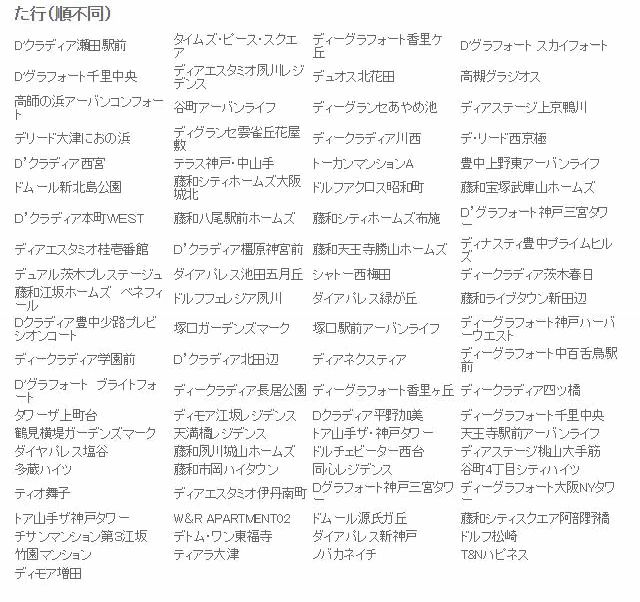 た行(順不同)
D'クラディア瀬田駅前 タイムズ・ピース・スクエア ディーグラフォート香里ケ丘 D'グラフォート スカイフォート
D'グラフォート千里中央 ディアエスタミオ夙川レジデンス デュオス北花田 高槻グラジオス
高師の浜アーバンコンフォート 谷町アーバンライフ ディーグランセあやめ池 ディアステージ上京鴨川
デリード大津におの浜 ディグランセ雲雀丘花屋敷 ディークラディア川西 デ・リード西京極
D’クラディア西宮 テラス神戸・中山手 トーカンマンションA 豊中上野東アーバンライフ
ドムール新北島公園 藤和シティホームズ大阪城北 ドルフアクロス昭和町 藤和宝塚武庫山ホームズ
D’クラディア本町WEST 藤和八尾駅前ホームズ 藤和シティホームズ布施 D’グラフォート神戸三宮タワー
ディアエスタミオ桂壱番館 D’クラディア橿原神宮前 藤和天王寺勝山ホームズ ディナスティ豊中プライムヒルズ
デュアル茨木プレステージュ ダイアパレス池田五月丘 シャトー西梅田 ディークラディア茨木春日
藤和江坂ホームズ ベネフィール ドルフフェレジア夙川 ダイアパレス緑が丘 藤和ライブタウン新田辺
Dクラディア豊中少路プレビシオンコート 塚口ガーデンズマーク 塚口駅前アーバンライフ ディーグラフォート神戸ハーバーウエスト
ディークラディア学園前 D’クラディア北田辺 ディアネクスティア ディーグラフォート中百舌鳥駅前
D'グラフォート ブライトフォート ディークラディア長居公園 ディーグラフォート香里ヶ丘 ディークラディア四ツ橋
タワーザ上町台 ディモア江坂レジデンス Dクラディア平野加美 ディーグラフォート千里中央
鶴見横堤ガーデンズマーク 天満橋レジデンス トア山手ザ・神戸タワー 天王寺駅前アーバンライフ
ダイヤパレス塩谷 藤和夙川城山ホームズ ドルチェビーター西台 ディアステージ桃山大手筋
多蔵ハイツ 藤和市岡ハイタウン 同心レジデンス 谷町4丁目シティハイツ
ティオ舞子 ディアエスタミオ伊丹南町 Dグラフォート神戸三宮タワー ディーグラフォート大阪NYタワー
トア山手ザ神戸タワー W&R APARTMENT02 ドムール源氏ガ丘 藤和シティスクエア阿部野橋
チサンマンション第3江坂 デトム・ワン東福寺 ダイアパレス新神戸 ドルフ松崎
竹園マンション ティアラ大津 ノバカネイチ T&Nハピネス
ディモア増田